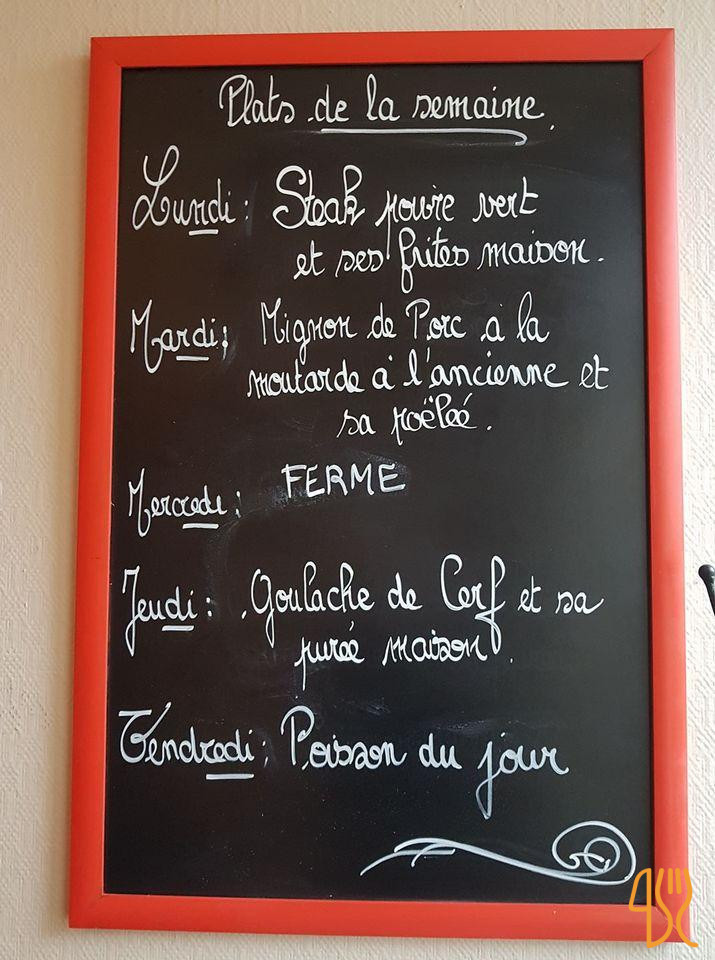 Plats de la semaine.
Lundi : Steak poivre vert
et ses frites maison.
Mardi : Mignon de Porc à la
moutarde à l'ancienne et
sa poëlée.
Mercredi : FERME
Jeudi : Goulache de Cerf et sa
purée maison.
Vendredi : Poisson du jour